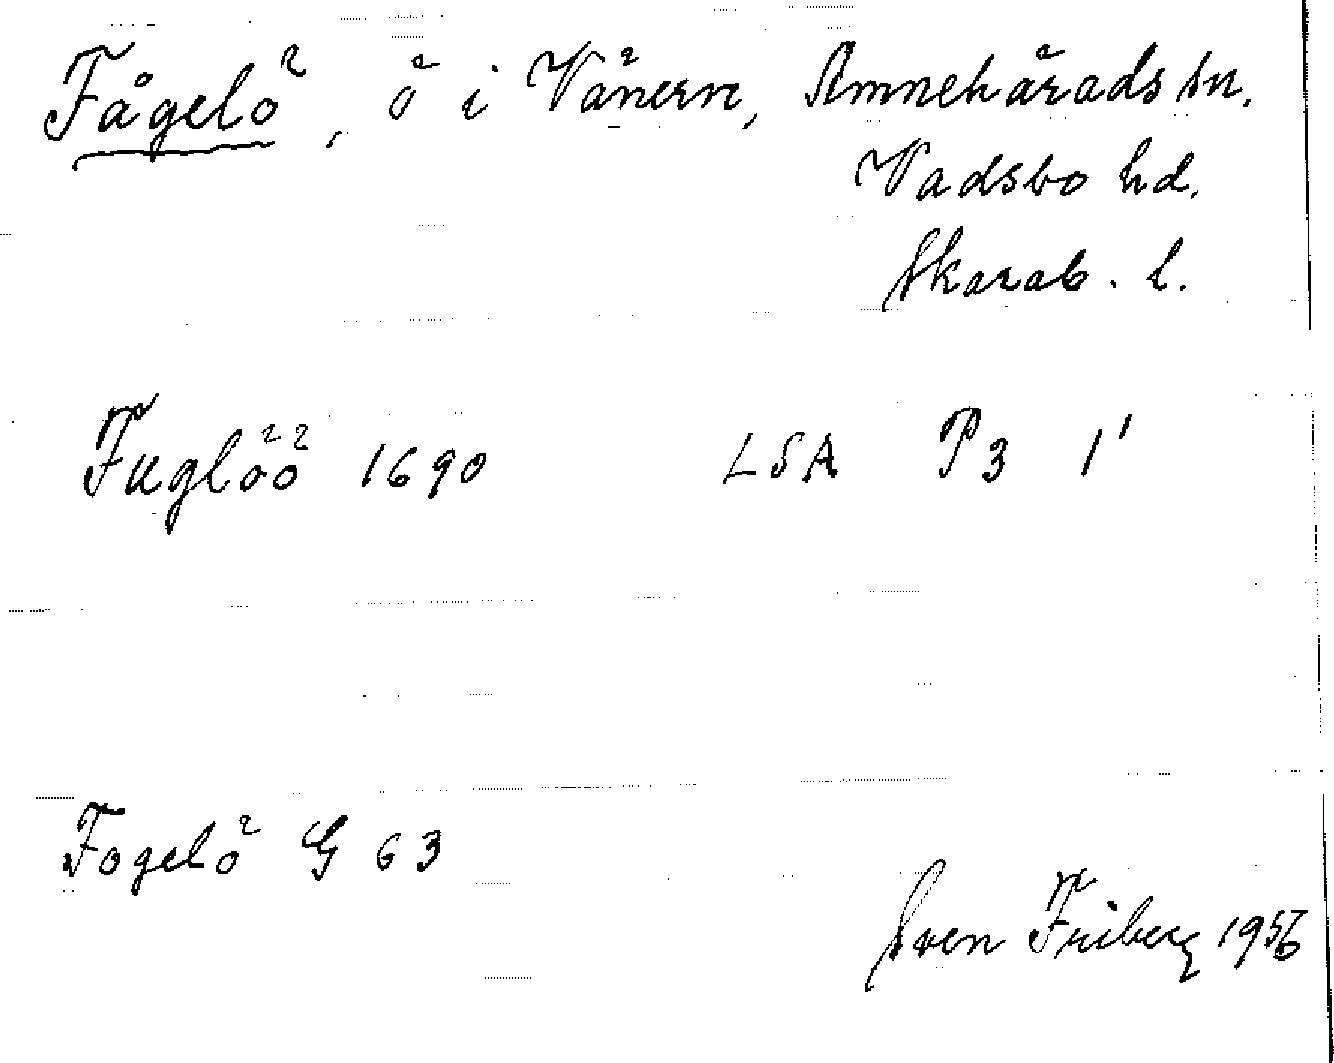 Fågelö, ö i Vänern, Amnehärads sn.
Vadsbo hd.
Skarab. l.
Fuglöö 1690 LSA P3 1'
Fogelö G 63
Sven Friberg 1956